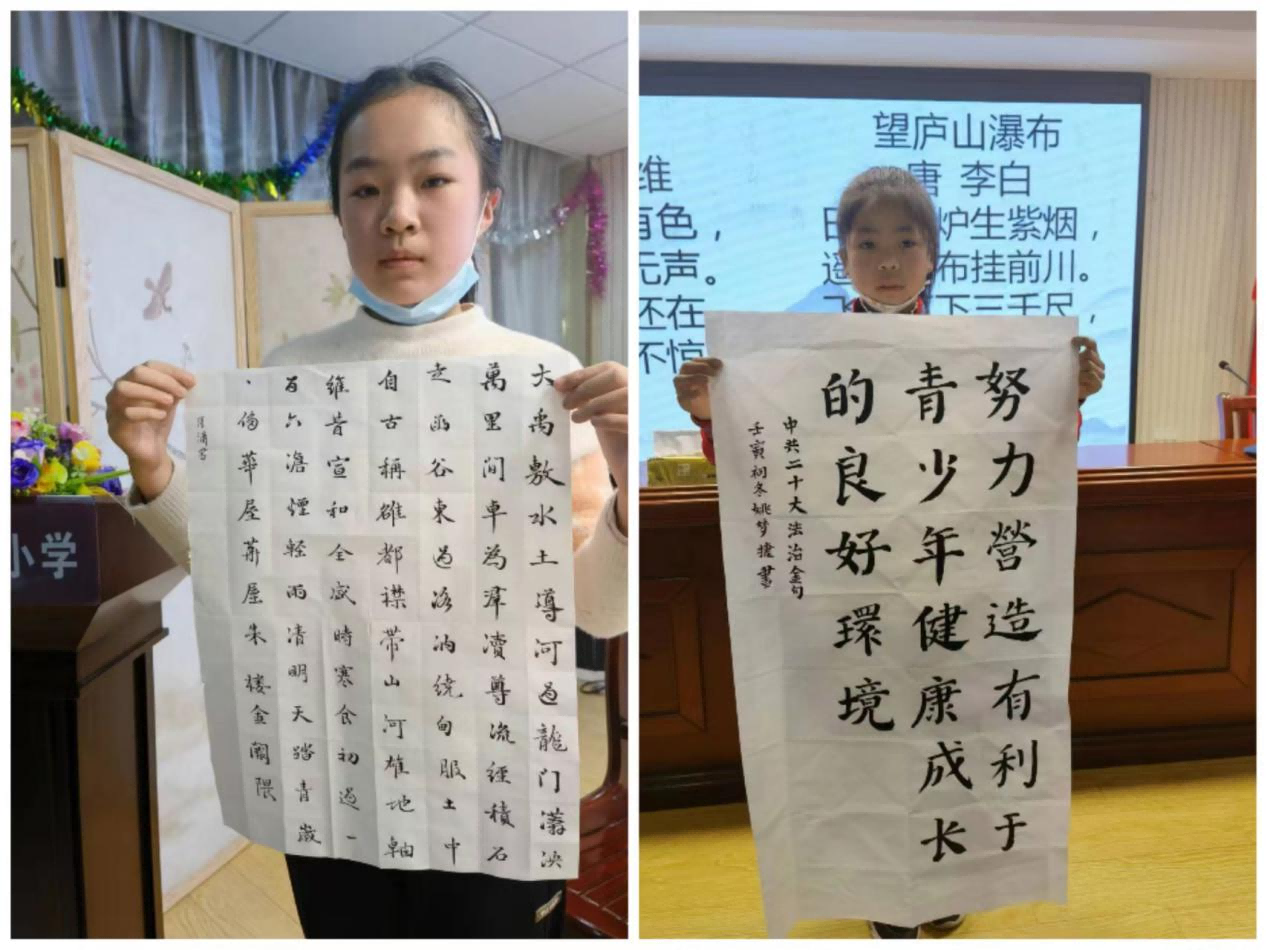 大禹敷水土導河過龍門
萬里間卓為羣瀆尊流經積石
走函谷東過洛汭繞甸服土中
自古稱雒都襟帶山河雄地軸
維昔宣和全盛時寒食初過一
百六澹煙輕雨清明天踏青歲
華屋 屋朱樓金闕隈
小学
维
有色，
无声。
还在
不惊
望庐山瀑布
唐 李白
日 炉生紫烟，
遥 布挂前川。
飞 下三千尺，
努力營造有利于
青少年健康成长
的良好環境
中共二十大法治金句
壬寅初冬姚梦 書